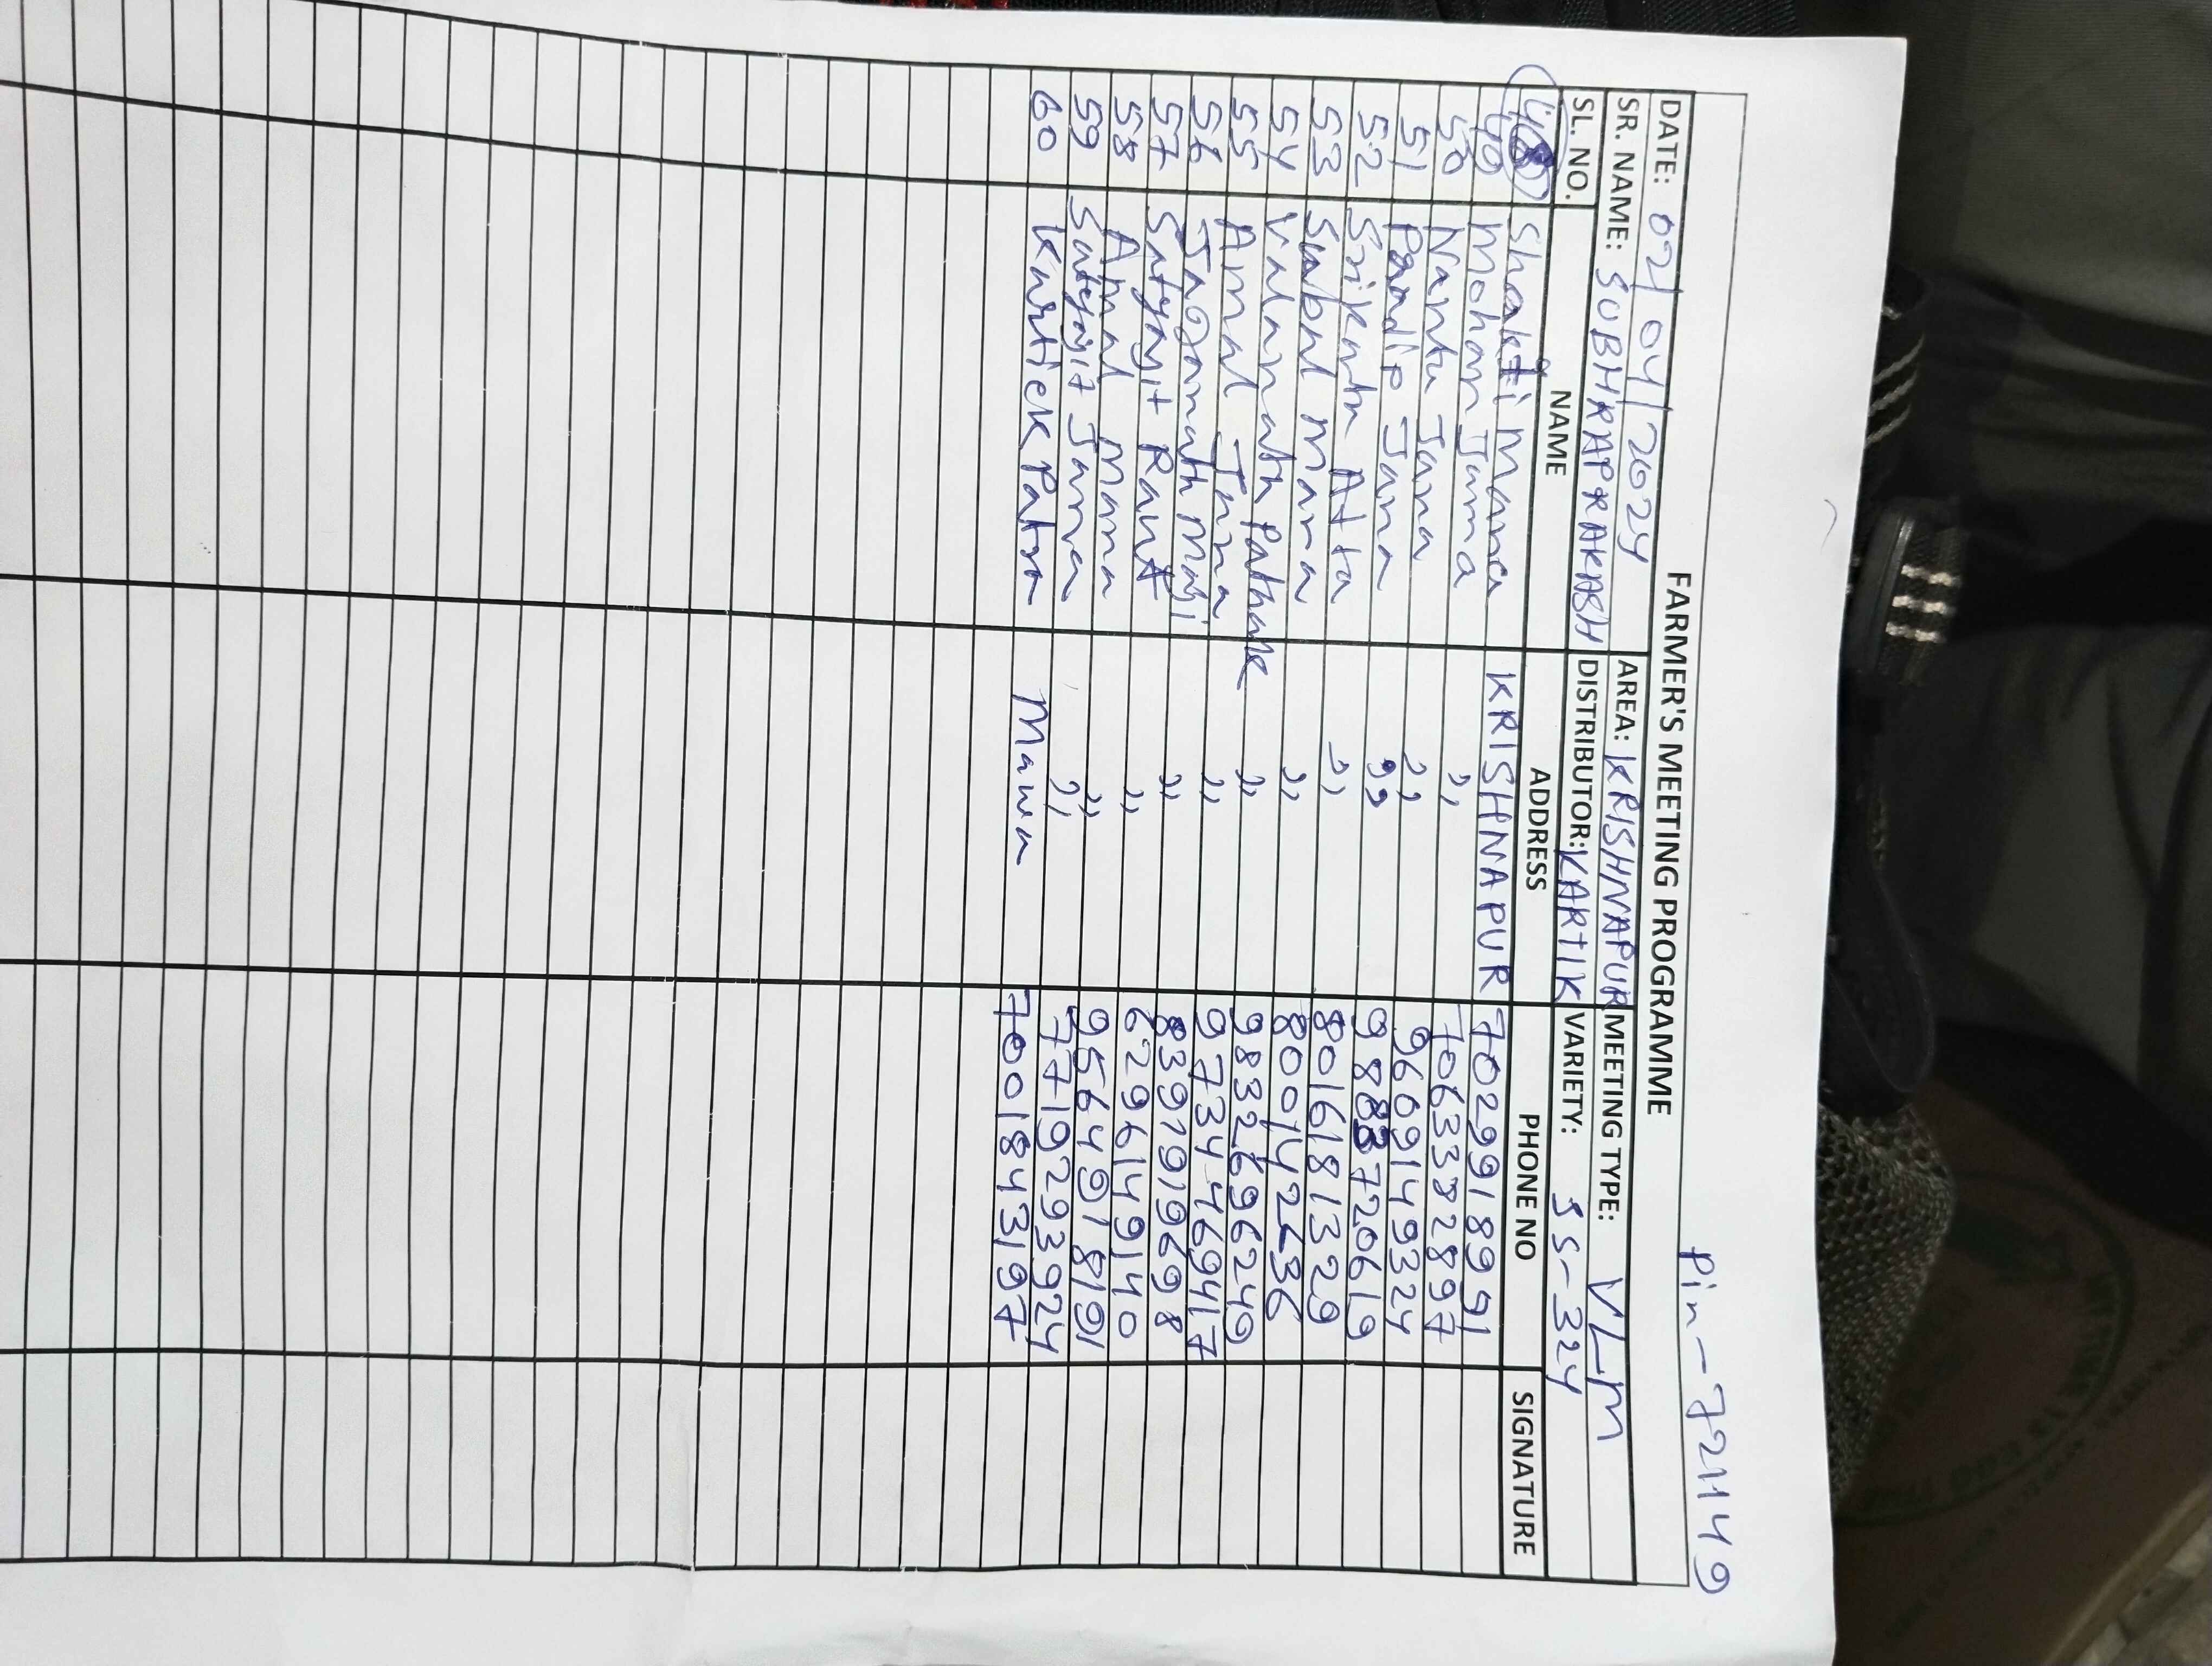 Pin-721149
FARMER'S MEETING PROGRAMME
DATE: 02/04/2024 AREA: KRISHNAPUR MEETING TYPE: VLM
SR. NAME: SUBHRAPRAKASH DISTRIBUTOR: KARTIK VARIETY: SS-324
SL. NO. NAME ADDRESS PHONE NO SIGNATURE
Shakti Manna KRISHNAPUR 7029918991
Mohan Jana ,, 7063382897
50 Nantu Jana ,, 9669149324
51 Jana ,, 9888720619
52 Srikanta 8016181329
53 Mana ,, 8001142636
54 ,, 9832696249
55 Amal Jana ,, 9734469417
56 Jagannath Maji ,, 8397919698
57 Satyajit Raut ,, 6296149140
58 Amal Manna ,, 9564918191
59 Satyajit Jana ,, 7719293924
60 Kartick Patra 7001843197